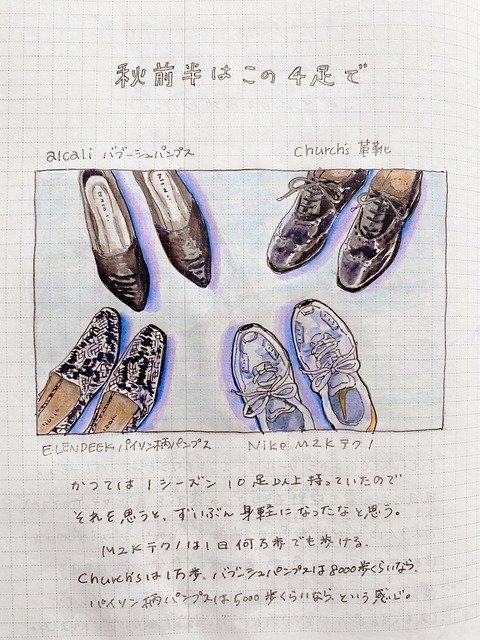 秋前半はこの4足で
alcali バブーシュパンプス
Church's 革靴
ELENDEEK パイソン柄パンプス
Nike M2K テクノ
かつては1シーズン10足以上持っていたので
それを思うと、ずいぶん身軽になったなと思う。
M2Kテクノは1日何万歩でも歩ける、
Church'sは1万歩、バブーシュパンプスは8000歩くらいなら、
パイソン柄パンプスは5000歩くらいなら、という感じ。